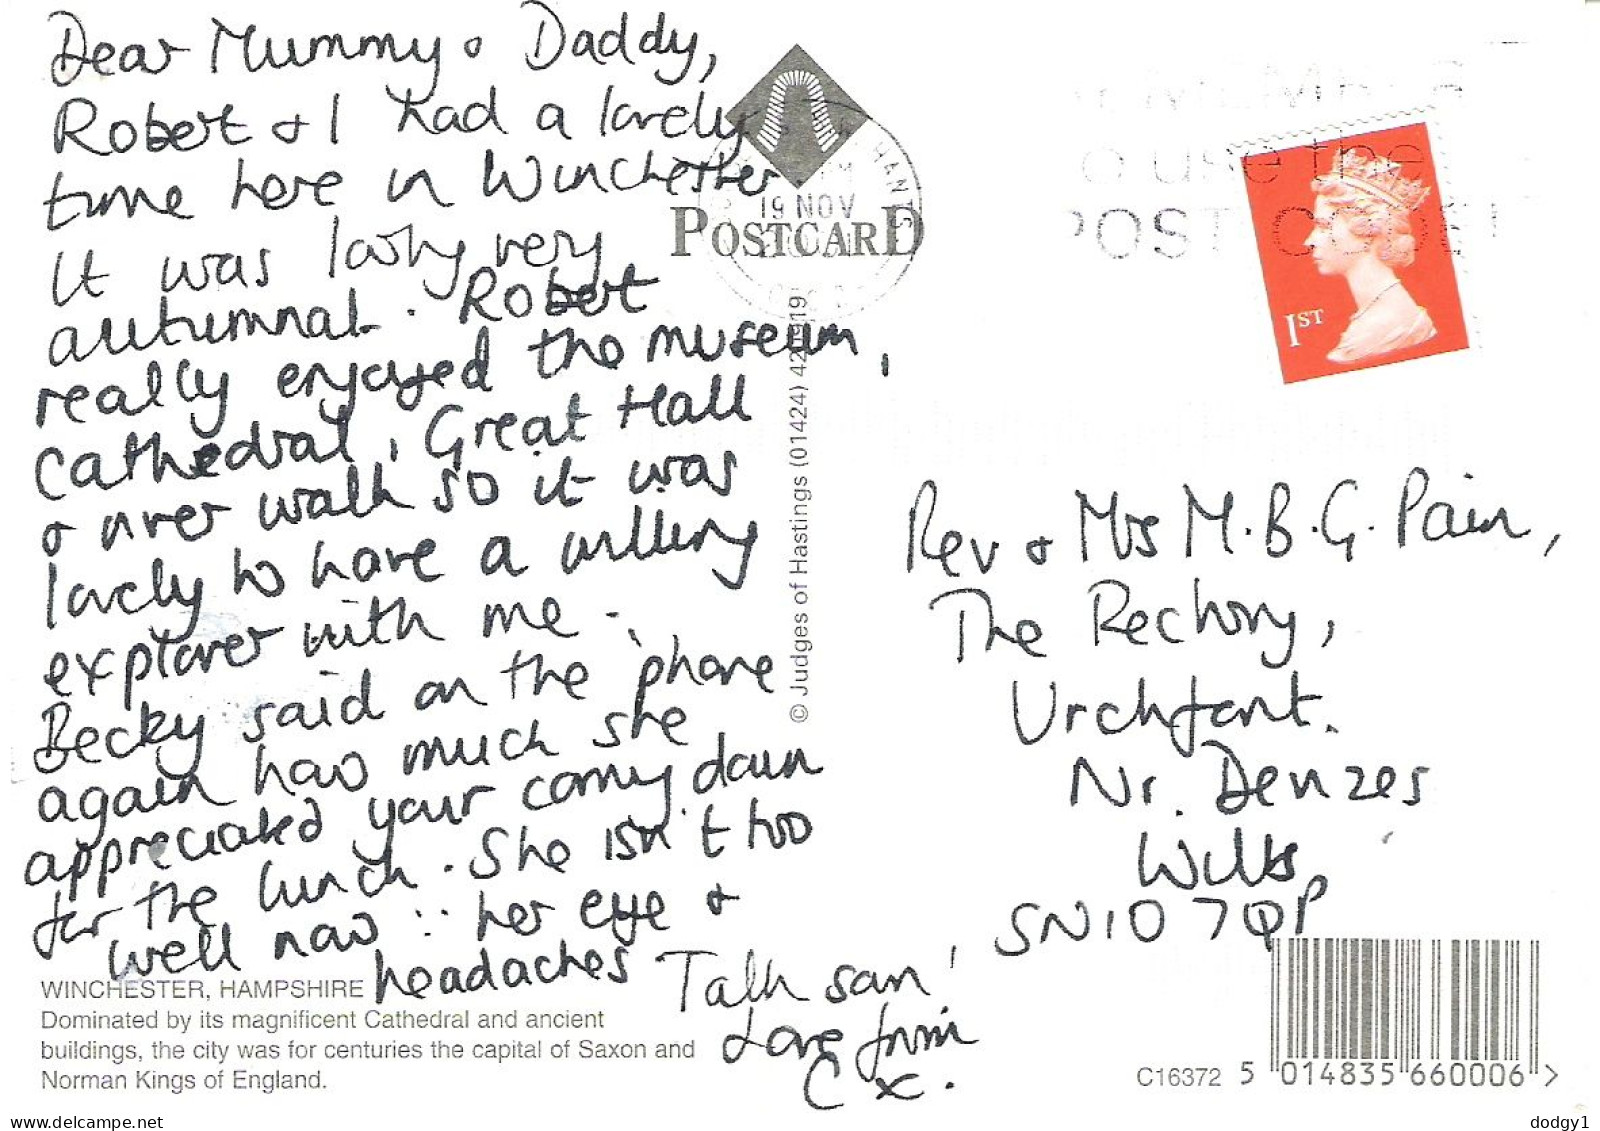 Dear Mummy & Daddy,
Robert & I had a lovely
time here in Winchester.
It was looking very
autumnal. Robert
really enjoyed the museum,
Cathedral, Great Hall
& river walk so it was
lovely to have a willing
explorer with me.
Becky said on the 'phone
again how much she
appreciated your coming down
for the lunch. She isn't too
well now :: her eye &
headaches
Talk soon!
Love from
C x.
POSTCARD
19 NOV
HANTS
use the
POST CODE
1ST
© Judges of Hastings (01424) 42
Rev & Mrs M.B.G. Pain,
The Rectory,
Urchfont.
Nr. Devizes
Wilts
SN10 7QP
WINCHESTER, HAMPSHIRE
Dominated by its magnificent Cathedral and ancient
buildings, the city was for centuries the capital of Saxon and
Norman Kings of England.
C16372 5 014835 660006 >
delcampe.net
dodgy1